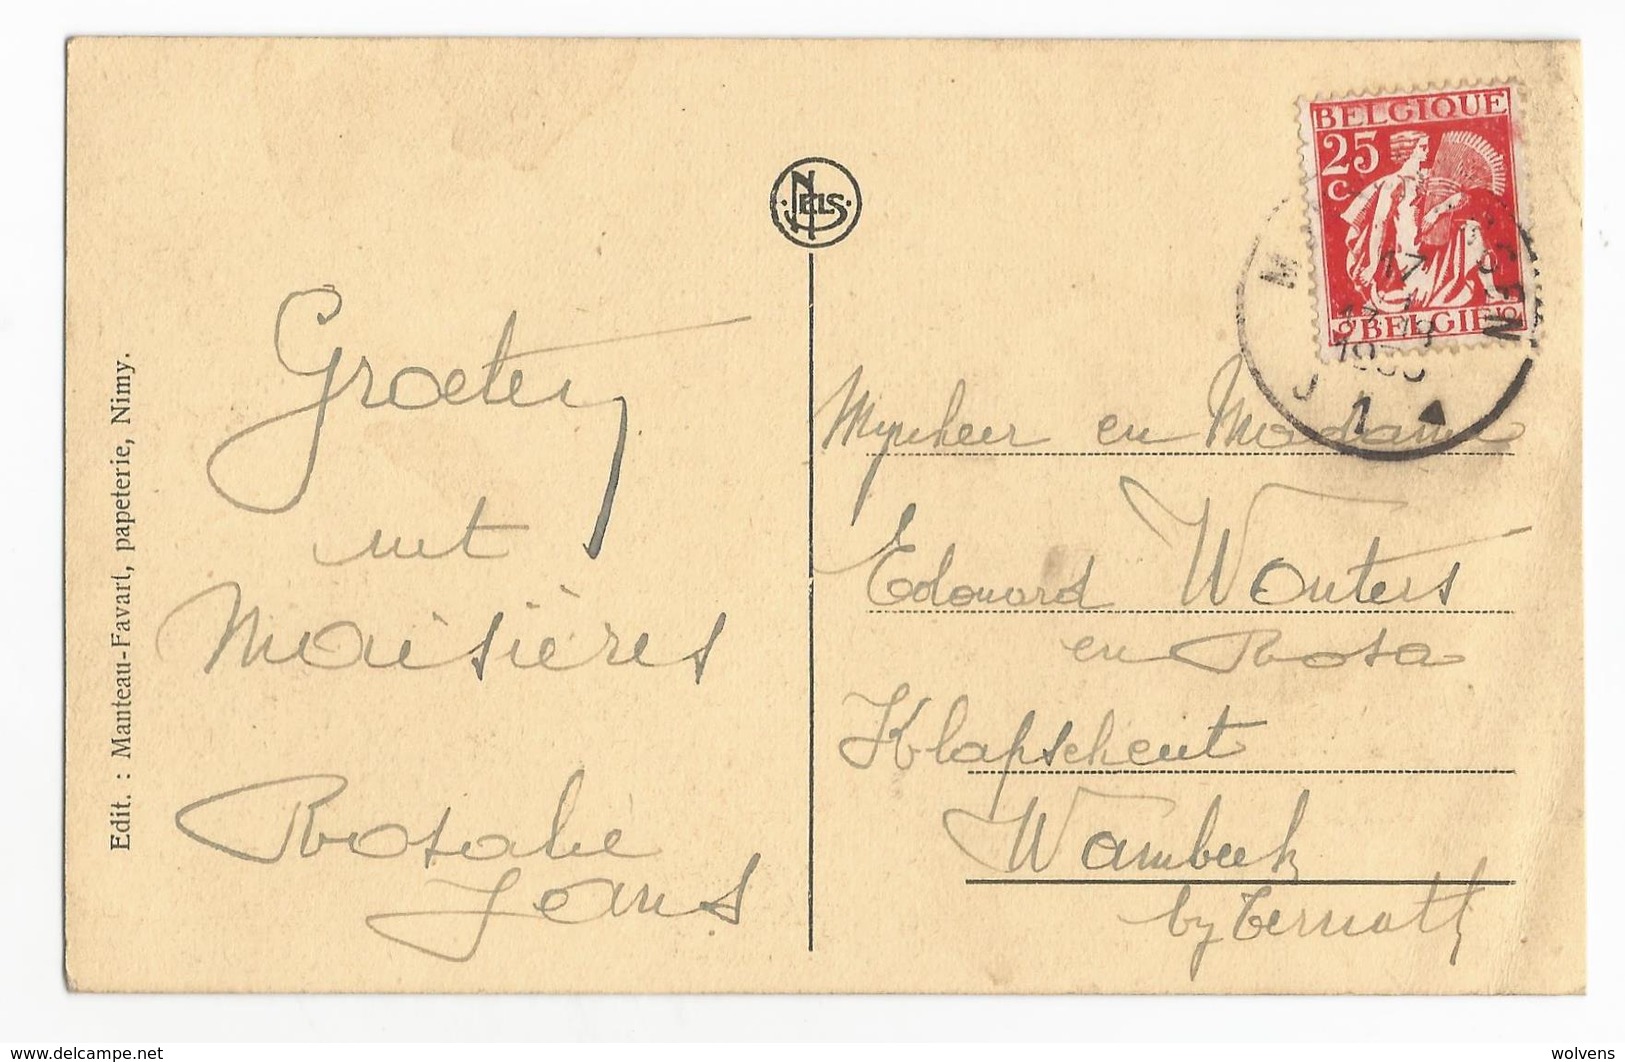 Edit. : Manteau-Favart, papeterie, Nimy.
NELS
BELGIQUE
25
C
BELGIË
Groeten
uit
Maisières
Rosalie
Jans
Mynheer en Madame
Edouard Wouters
en Rosa
Klapscheut
Wambeek
by Ternath
wolvens
www.delcampe.net